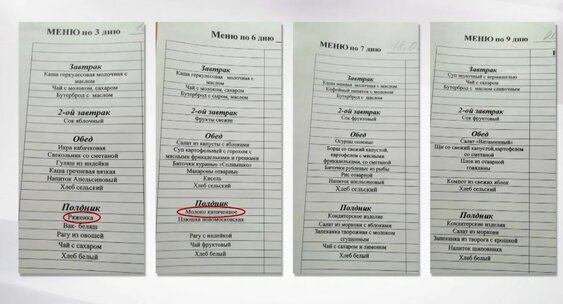 МЕНЮ по 3 дню
Завтрак
Каша геркулесовая молочная с
маслом
Чай с молоком, сахаром
Бутерброд с маслом
2-ой завтрак
Сок яблочный
Обед
Икра кабачковая
Свекольник со сметаной
Гуляш из индейки
Каша гречневая вязкая
Напиток Апельсиновый
Хлеб сельский
Полдник
Ряженка
Вак- беляш
Рагу из овощей
Чай с сахаром
Хлеб белый
МЕНЮ по 6 дню
Завтрак
Каша геркулесовая, молочная с
маслом
Чай с молоком, сахаром
Бутерброд с сыром, маслом
2-ой завтрак
Фрукты свежие
Обед
Салат из капусты с яблоками
Суп картофельный с горохом с
мясными фрикадельками и гренками
Биточки куриные «Солнышко»
Макароны отварные
Кисель
Хлеб сельский
Полдник
Молоко кипяченое
Плюшка новомосковская
Рагу с индейкой
Чай фруктовый
Хлеб белый
МЕНЮ по 7 дню
Завтрак
Каша манная молочная с маслом
Кофейный напиток с молоком
Бутерброд с маслом
2-ой завтрак
Сок фруктовый
Обед
Огурцы соленые
Борщ со свежей капустой,
картофелем с мясными
фрикадельками, со сметаной
Биточки рубленые из рыбы
Рис отварной
Напиток апельсиновый
Хлеб сельский
Полдник
Кондитерские изделие
Салат из моркови с яблоками
Запеканка творожная с молоком
сгущенным
Чай с молоком, сахаром
Хлеб белый
МЕНЮ по 9 дню
Завтрак
Суп молочный с вермишелью
Чай с сахаром
Бутерброд с маслом сливочным
2-ой завтрак
Сок фруктовый
Обед
Салат «Витаминный»
Щи со свежей капустой, картофелем
со сметаной
Плов из отварной
говядины
Компот из свежих яблок
Хлеб сельский
Полдник
Кондитерские изделие
Салат из моркови
Запеканка из творога с крошкой
Напиток шиповника
Хлеб белый